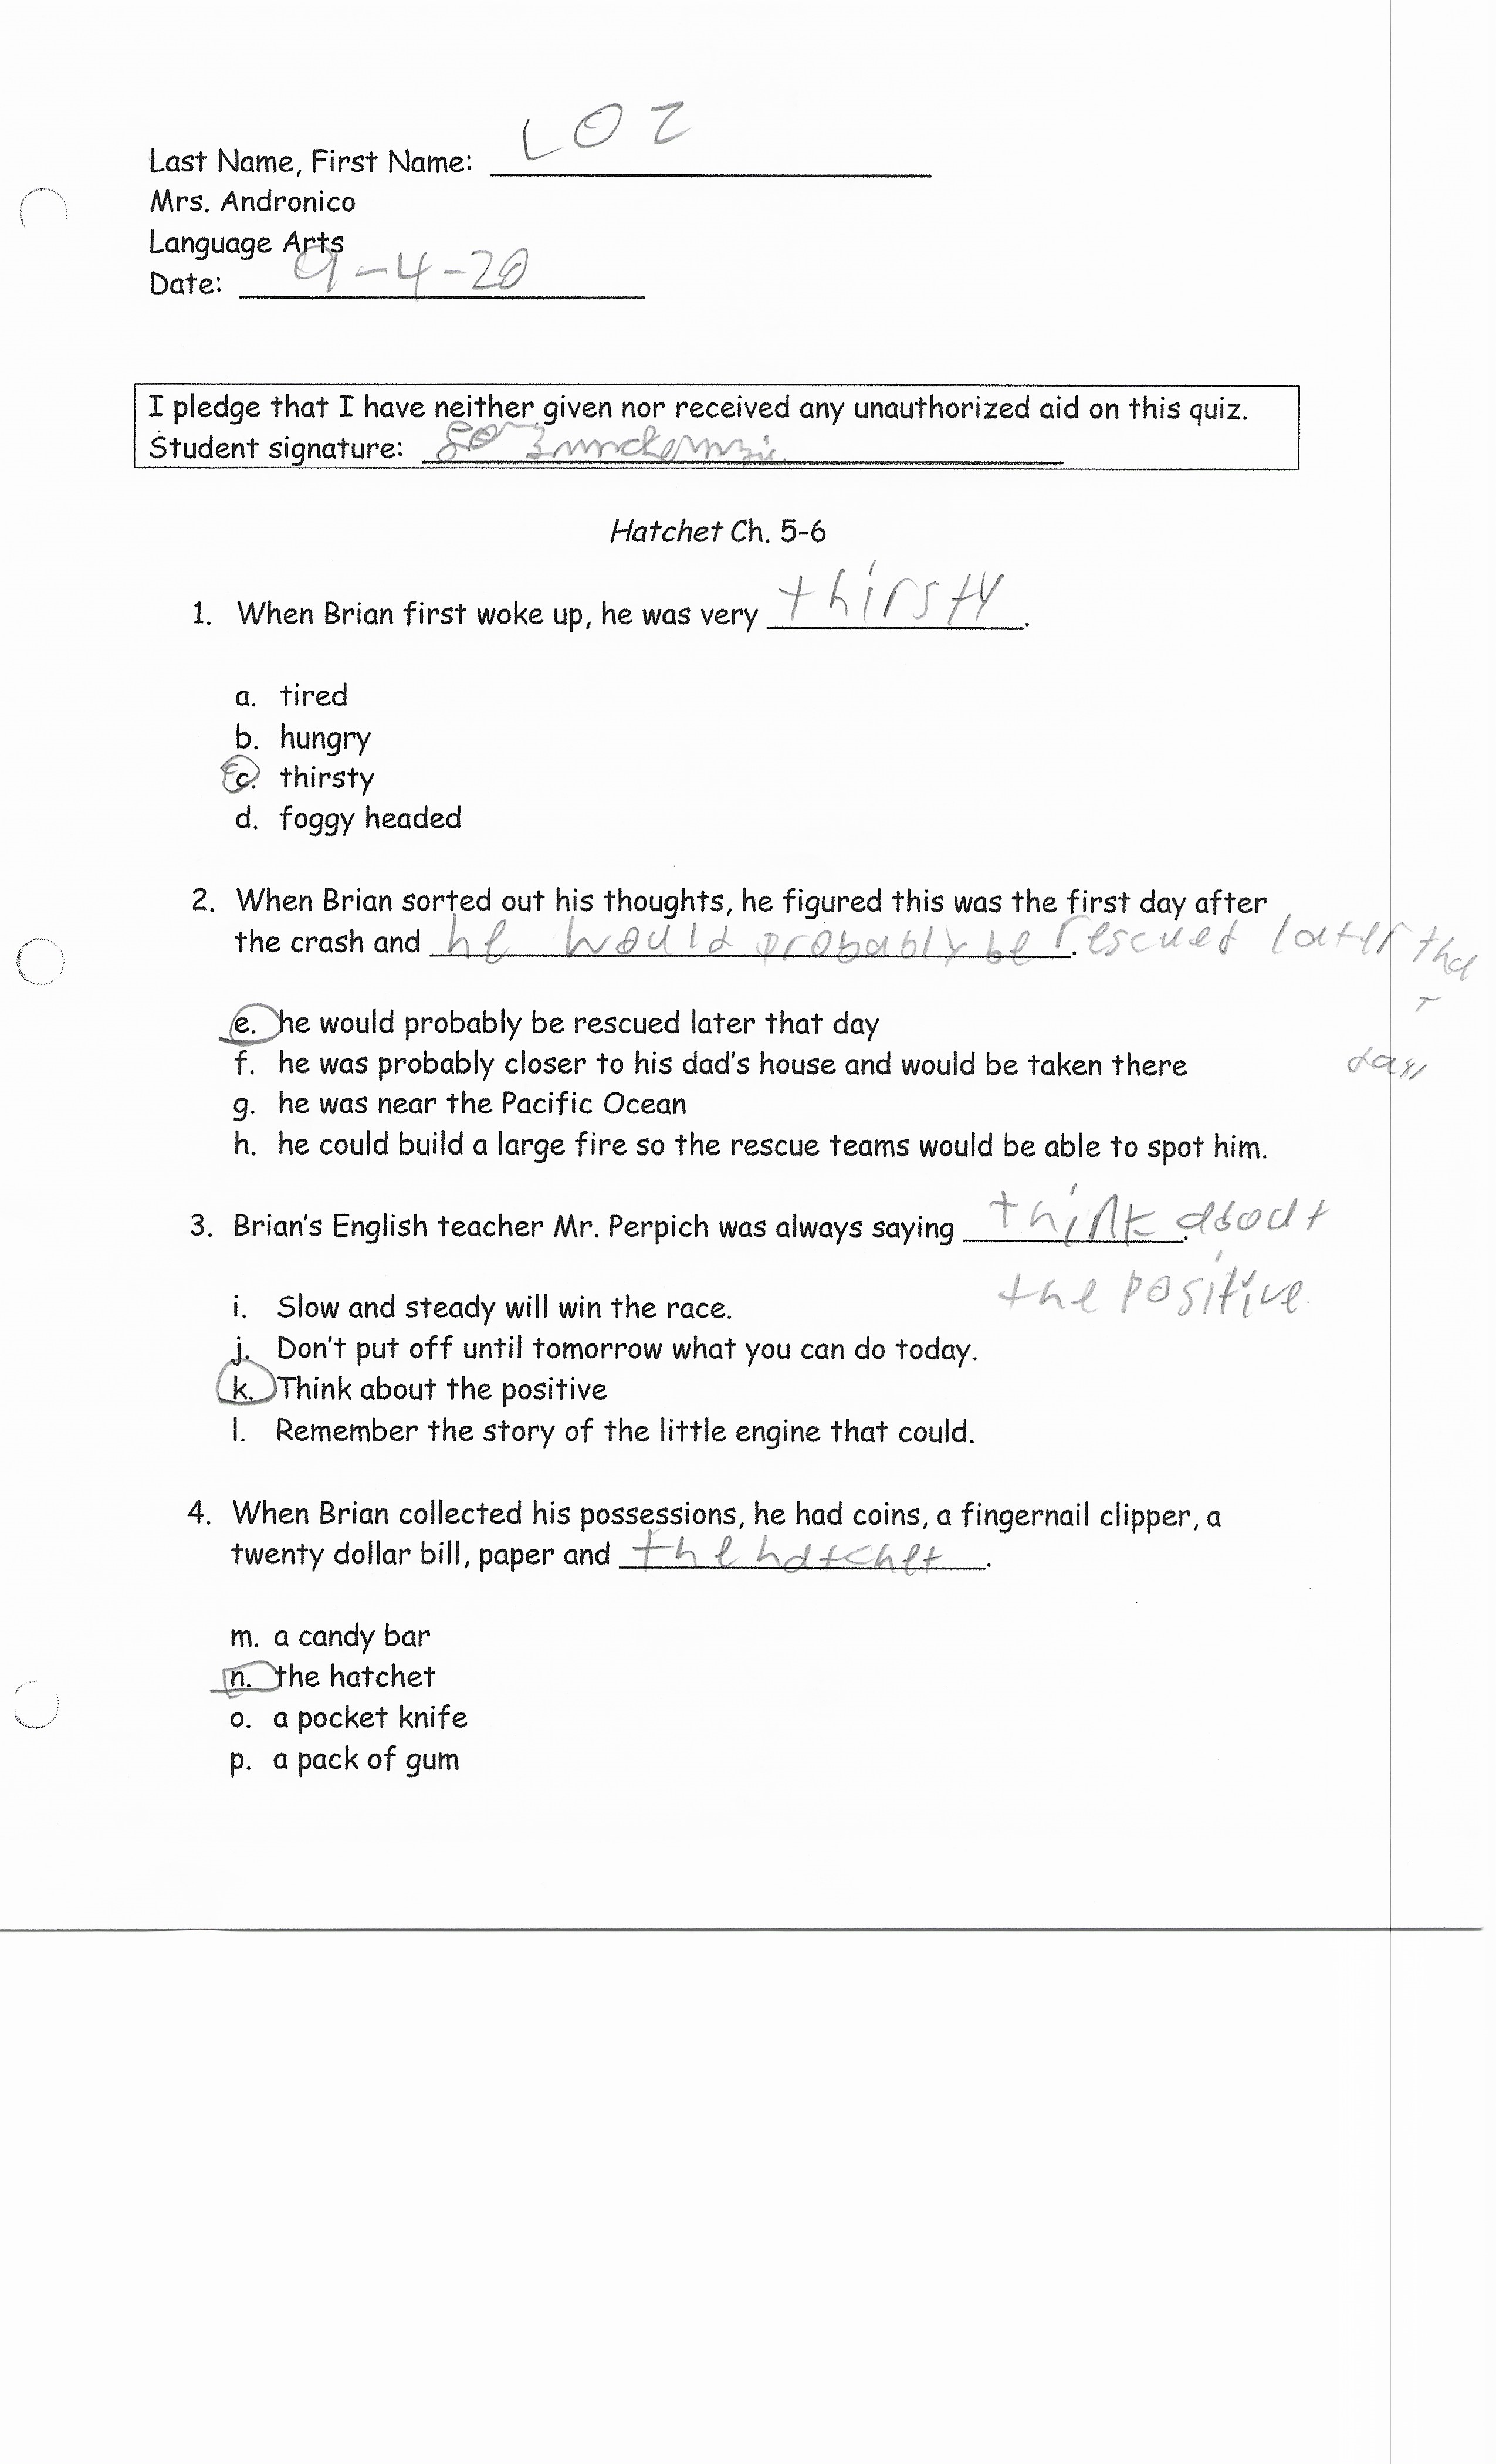 Last Name, First Name: LOZ
Mrs. Andronico
Language Arts
Date: 9-4-20
I pledge that I have neither given nor received any unauthorized aid on this quiz.
Student signature:
Hatchet Ch. 5-6
1. When Brian first woke up, he was very thirsty.
a. tired
b. hungry
c. thirsty
d. foggy headed
2. When Brian sorted out his thoughts, he figured this was the first day after
the crash and he would probably be rescued later that
day
e. he would probably be rescued later that day
f. he was probably closer to his dad's house and would be taken there
g. he was near the Pacific Ocean
h. he could build a large fire so the rescue teams would be able to spot him.
3. Brian's English teacher Mr. Perpich was always saying think about
the positive
i. Slow and steady will win the race.
j. Don't put off until tomorrow what you can do today.
k. Think about the positive
l. Remember the story of the little engine that could.
4. When Brian collected his possessions, he had coins, a fingernail clipper, a
twenty dollar bill, paper and the hatchet.
m. a candy bar
n. the hatchet
o. a pocket knife
p. a pack of gum